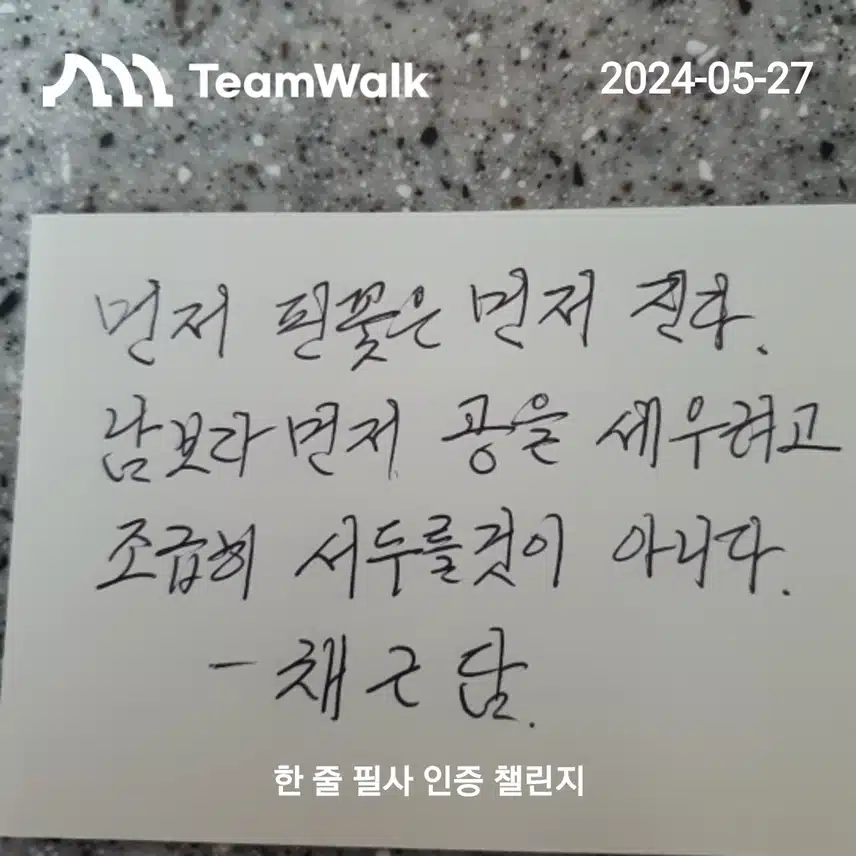 TeamWalk
2024-05-27
먼저 핀꽃은 먼저 진다.
남보라 먼저 공을 세우려고
조급히 서두를것이 아니다.
- 채근담.
한 줄 필사 인증 챌린지